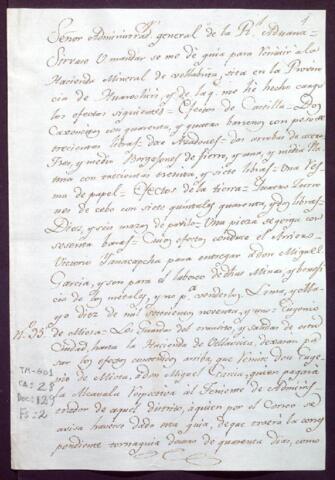 1
Señor Administrad.r general de la R.l Aduana=
Sirvase V mandar se me dé guia para remitir a la
Hacienda Mineral de Vellavista, sita en la Provin
cia de Huarochiri, y de la q. me he hecho cargo
los efectos siguientes= Efectos de Castilla= Dos
Caxoncitos con quarenta, y quatro barrenos con peso de
trecientas libras= doce Azadones= dos arrobas de acero=
Tres, y medio de fierro, y una, y media Pla
tina con trecientas treinta, y siete libras= Una Resma
de papel= Efectos de la tierra= Quatro
de cebo con siete quintales quarenta, y dos libras=
Diez, y seis mazos de pavilo= Una pieza de gerga con
sesenta baras= Cuios efectos conduce el Arriero
Victorio Yanacapcha para entregar a don Miguel
Garcia, y son para el laboreo de Minas, y benefi
cio de los metales, y no p.a venderlos. Lima, y Ma
yo diez de mil setecientos noventa, y uno= Eugenio
de Mista= Los Guardas del y salidas de esta
Ciudad hasta la Hacienda de Villavista, dexaran pa
sar los efectos contenidos arriba, que remite don Euge
nio de Mista, a don Miguel Garcia, quien pagará
la Alcavala respectiva al Teniente de Adminis
trador de aquel distrito, a quien por el Correo se
avisa haverse dado esta guia, de que traerá la corres
pondiente tornaguia dentro de quarenta dias, como
N.o 35.
TM-GO1
CA: 28
Doc: 129
Fs: 2